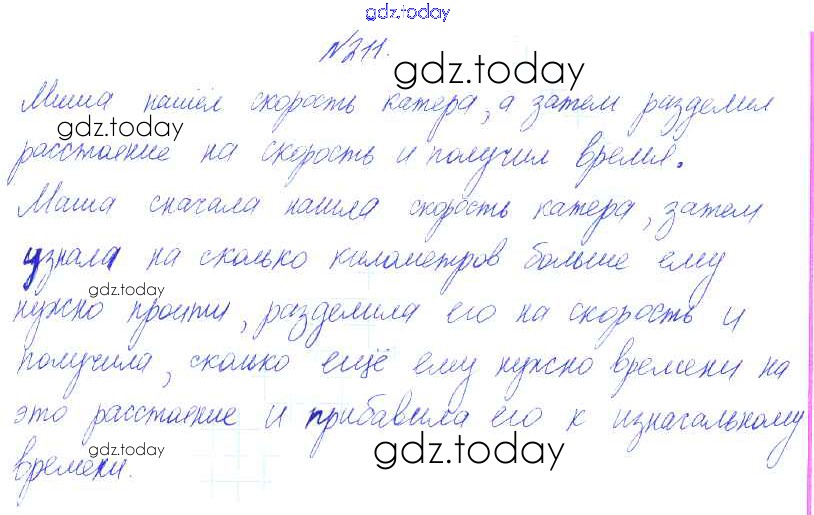 gdz.today
№211.
gdz.today
Миша нашёл скорость катера, а затем разделил
gdz.today
расстояние на скорость и получил время.
Маша сначала нашла скорость катера, затем
узнала на сколько километров больше ему
gdz.today
нужно пройти, разделила его на скорость и
получила, сколько ещё ему нужно времени на
это расстояние и прибавила его к изначальному
gdz.today
gdz.today
времени.